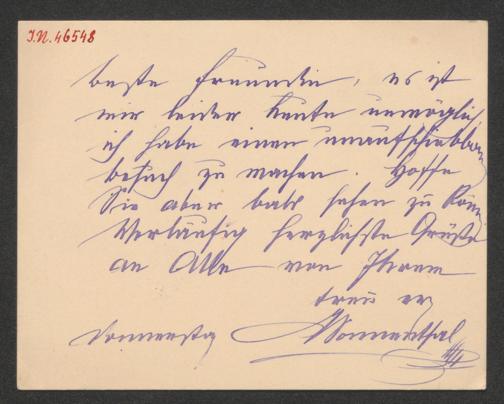 I.N. 46548
beste Freundin, es ist
mir leider heute unmöglich,
ich habe einen unaufschiebbaren
Besuch zu machen. Hoffe
Sie aber bald sehen zu können
Vorläufig herzlichste Grüße
an Alle von Ihrem
treu erg
Sonnenthal
Donnerstag